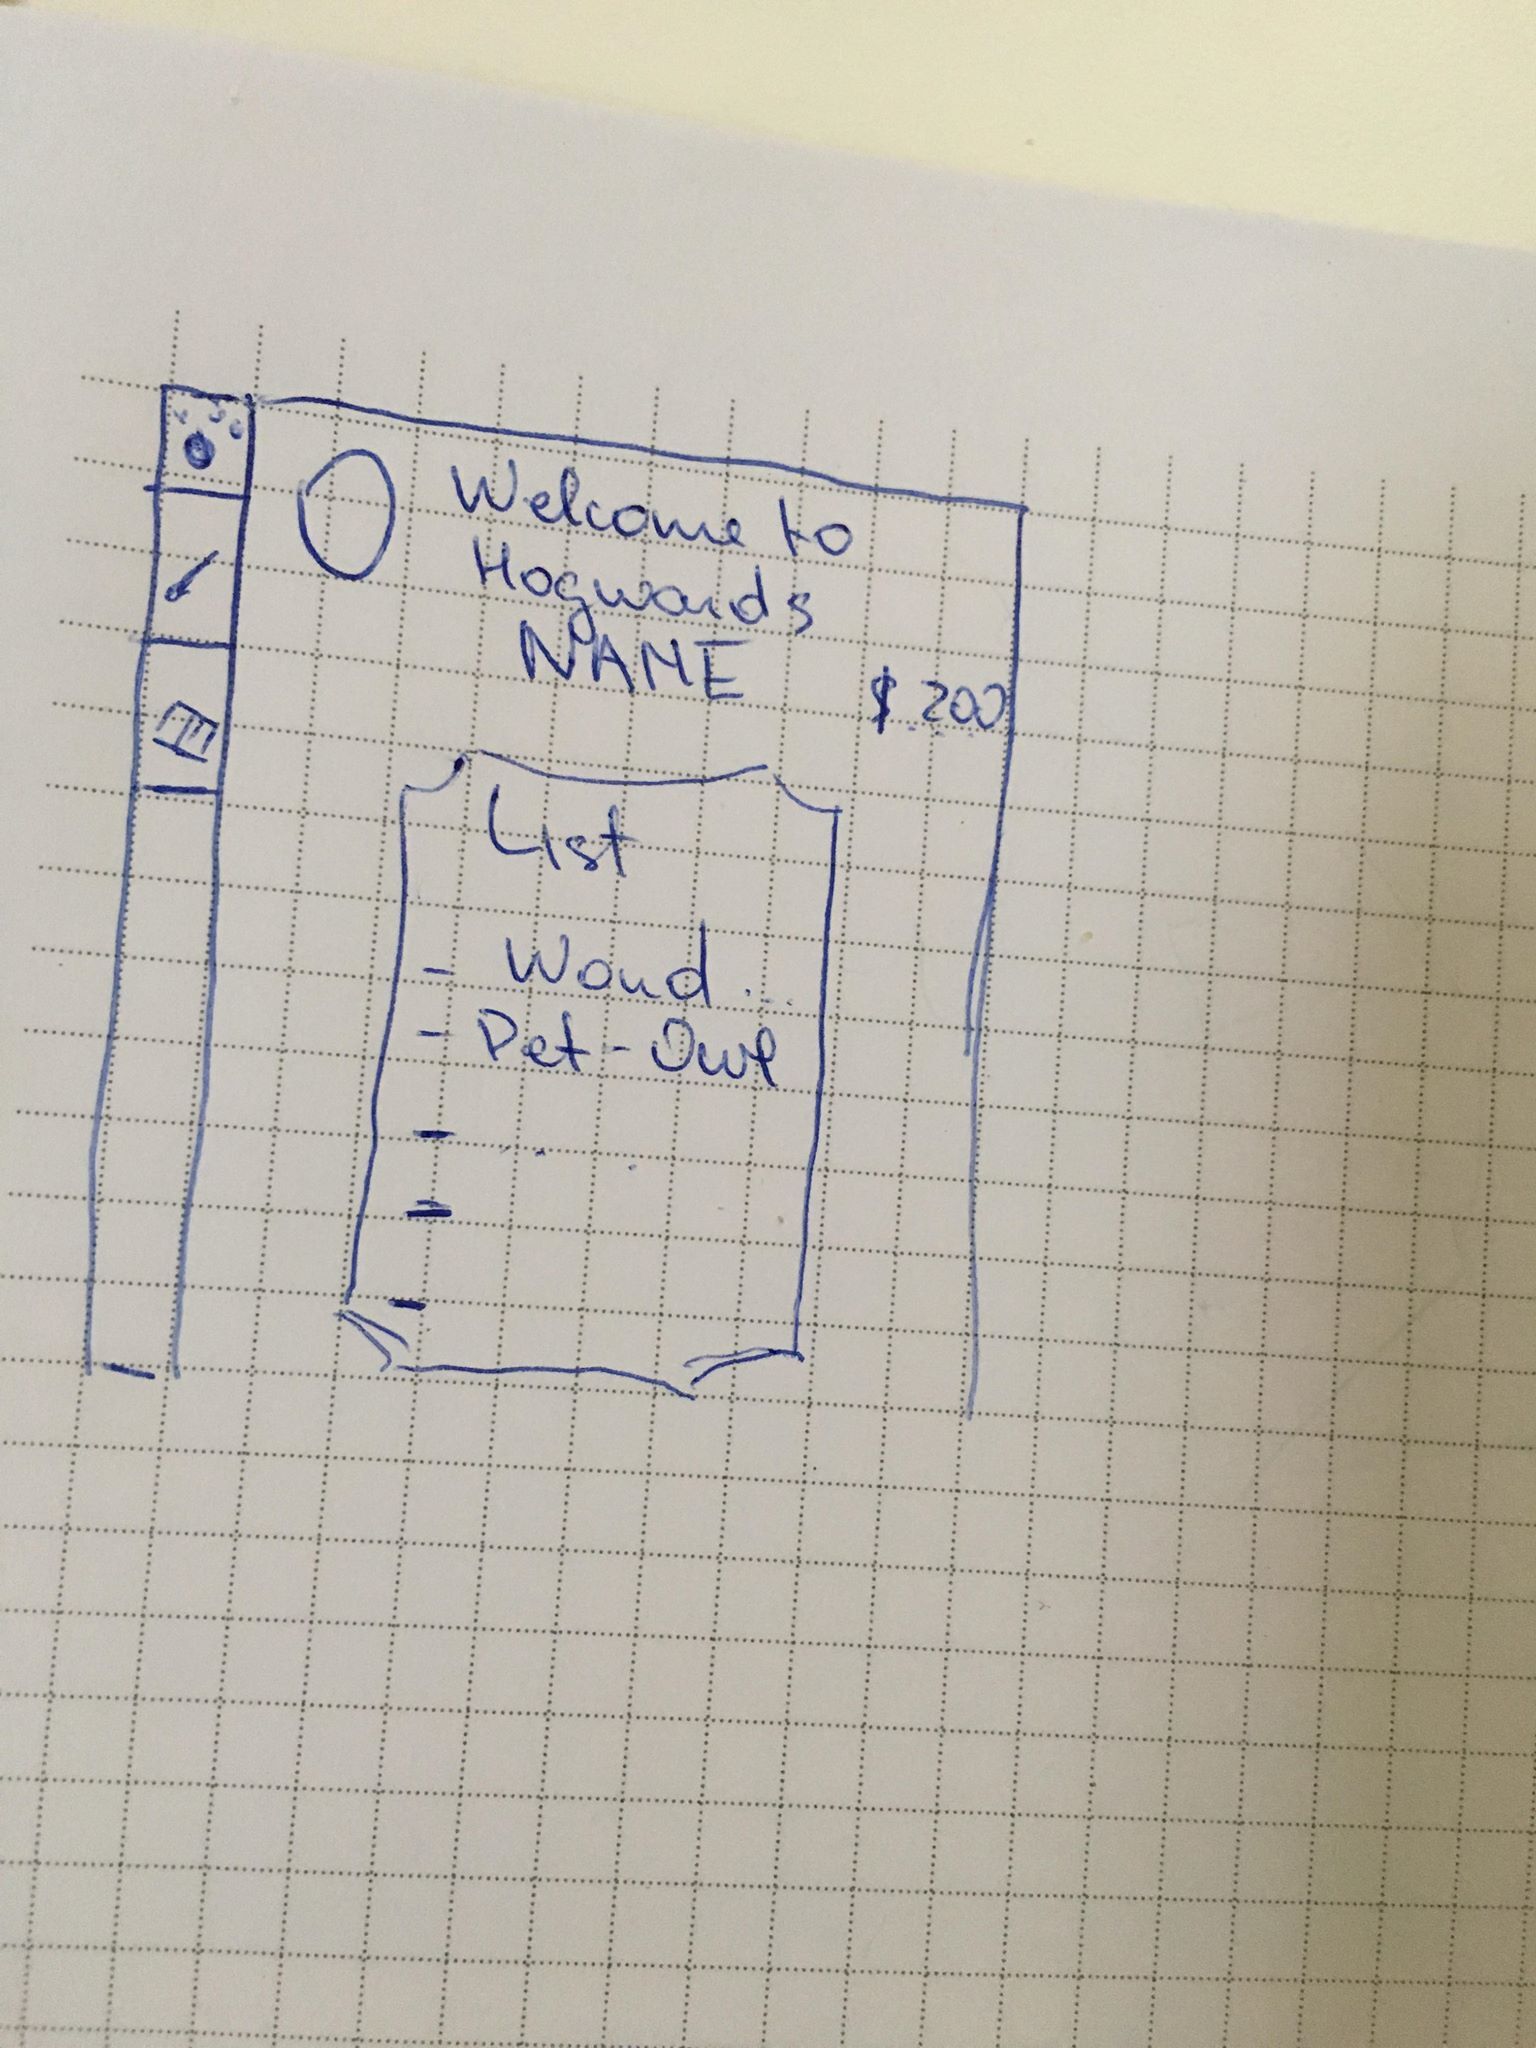 Welcome to
Hogwards
NAME
$ 200
List
- Wand ...
- Pet - Owl
-
-
-